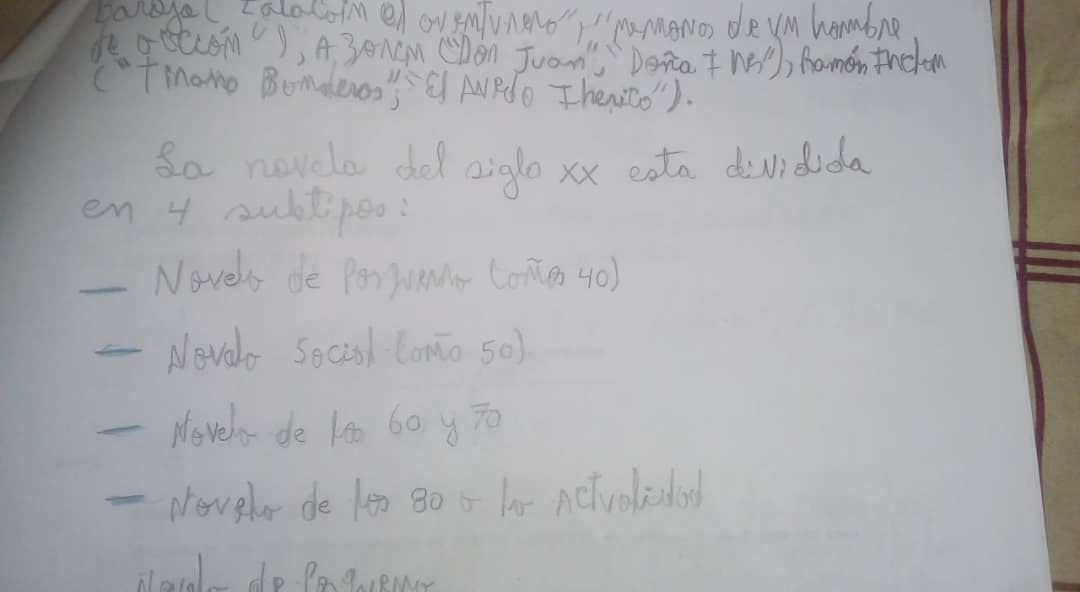 Baroja ( Zalacaín el aventurero", "Memorias de un hombre
de acción"), Azorín ("Don Juan", "Doña Inés"), Ramón Inclan
("Tirano Banderas", "El Ruedo Iberico").
La novela del siglo XX esta dividida
en 4 subtipos:
— Novela de Posguerra (años 40)
— Novela Social (año 50)
— Novela de los 60 y 70
— Novela de los 80 a la Actualidad
Novela de Posguerra